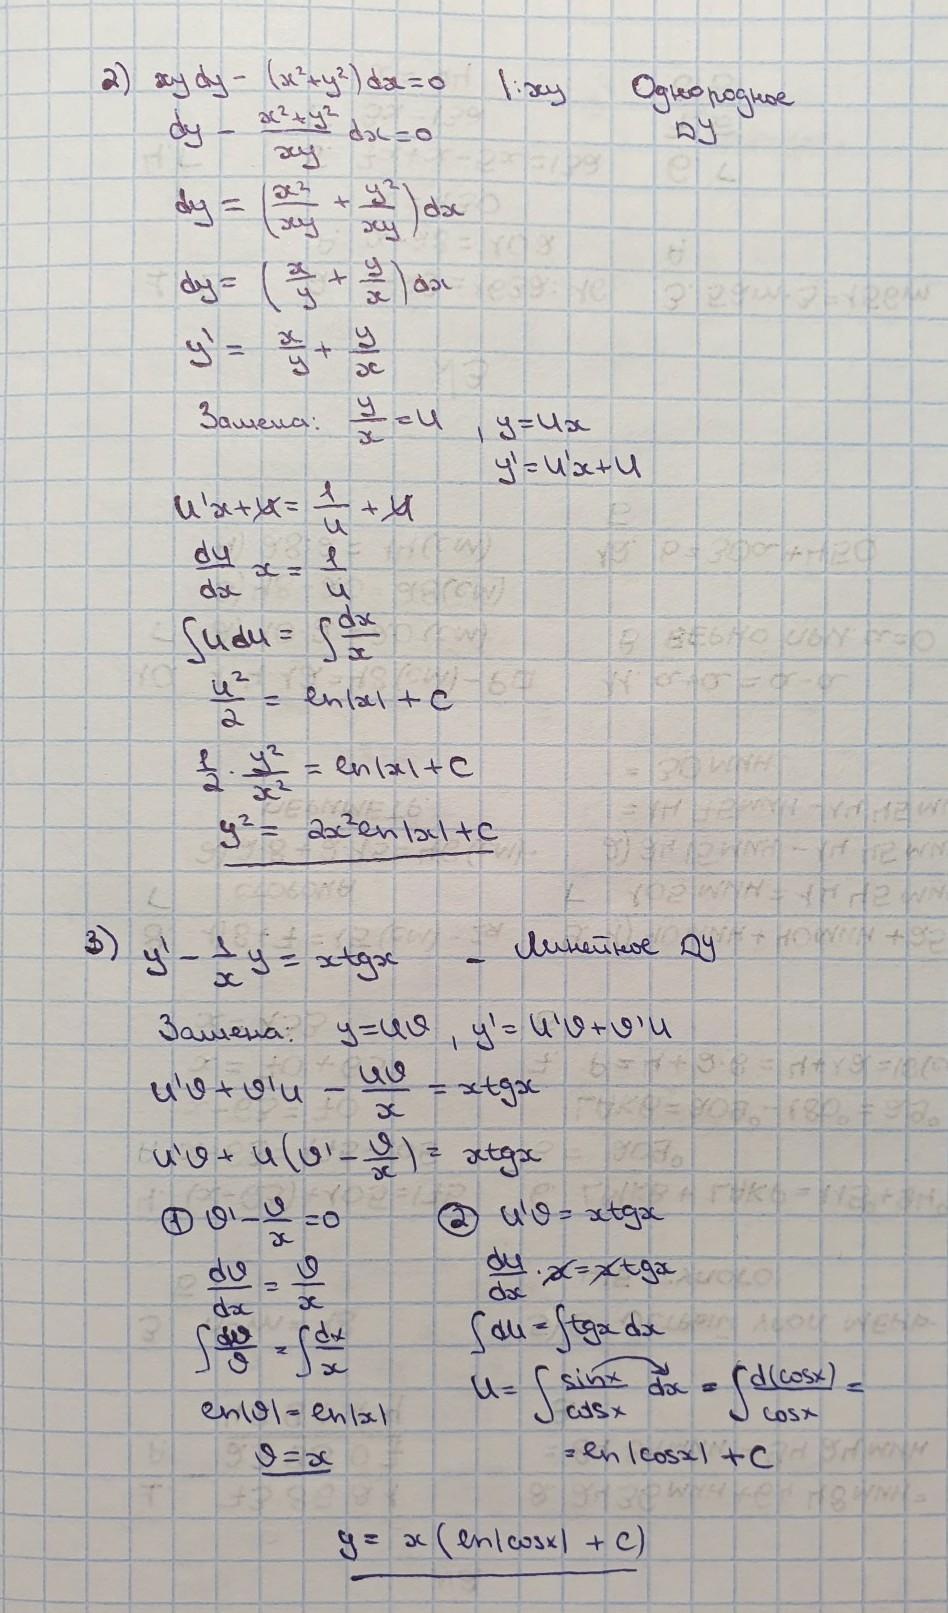 2) xy dy - (x²+y²)dx=0 |:xy Однородное ДУ
dy - \frac{x²+y²}{xy} dx=0
dy = (\frac{x²}{xy} + \frac{y²}{xy})dx
dy = (\frac{x}{y} + \frac{y}{x})dx
y' = \frac{x}{y} + \frac{y}{x}
Замена: \frac{y}{x} = u , y=ux
y'=u'x+u
u'x+u = \frac{1}{u} + u
\frac{du}{dx} x = \frac{1}{u}
∫u du = ∫\frac{dx}{x}
\frac{u²}{2} = ln|x| + C
\frac{1}{2} · \frac{y²}{x²} = ln|x| + C
y² = 2x²ln|x| + C
3) y' - \frac{1}{x} y = x tgx - Линейное ДУ
Замена: y=uϑ , y'= u'ϑ+ϑ'u
u'ϑ + ϑ'u - \frac{uϑ}{x} = x tgx
u'ϑ + u(ϑ' - \frac{ϑ}{x}) = x tgx
① ϑ' - \frac{ϑ}{x} = 0 ② u'ϑ = x tgx
\frac{dϑ}{dx} = \frac{ϑ}{x} \frac{du}{dx} · x = x tgx
∫\frac{dϑ}{ϑ} = ∫\frac{dx}{x} ∫du = ∫tgx dx
ln|ϑ| = ln|x| u = ∫\frac{sinx}{cosx} dx = ∫\frac{d(cosx)}{cosx} =
ϑ = x = ln|cosx| + C
y = x(ln|cosx| + C)